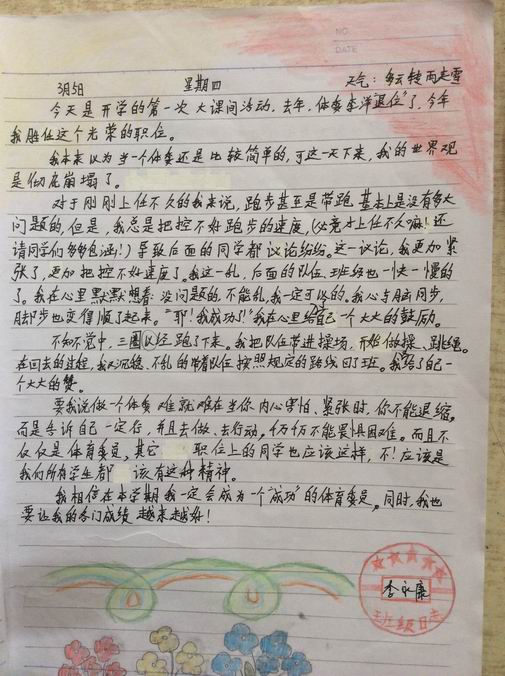 NO.
DATE
3月5日 星期四 天气：多云转雨夹雪
今天是开学的第一次大课间活动，去年，体委李洋"退位"了，今年
我胜任这个光荣的职位。
我本来以为当一个体委还是比较简单的，可这一天下来，我的世界观
是彻底崩塌了。
对于刚刚上任不久的我来说，跑步甚至是带跑基本上是没有多大
问题的，但是，我总是把控不好跑步的速度，(必竟才上任不久嘛！还
请同学们多多包涵！)导致后面的同学都议论纷纷。这一议论，我更加紧
张了，更加把控不好速度了。我这一乱，后面的队伍、班级也一快一慢的
了。我在心里默默想着：没问题的，不能乱，我一定可以的。我心与脑同步，
脚步也变得顺了起来。"耶！我成功了！"我在心里给自己一个大大的鼓励。
不知不觉中，三圈以经跑了下来。我把队伍带进操场，开始做操、跳绳。
在回去的过程，我沉稳、不乱的带着队伍按照规定的路线回了班。我给了自己一
个大大的赞。
要我说做一个体委难就难在当你内心害怕、紧张时，你不能退缩。
而是告诉自己一定行，并且去做、去行动。千万不能畏惧困难。而且不
仅仅是体育委员，其它 职位上的同学也应该这样，不！应该是
我们所有学生都 该有这种精神。
我相信在本学期我一定会成为一个"成功"的体育委员。同时，我也
要让我的各门成绩越来越好！
李永康
班级日志